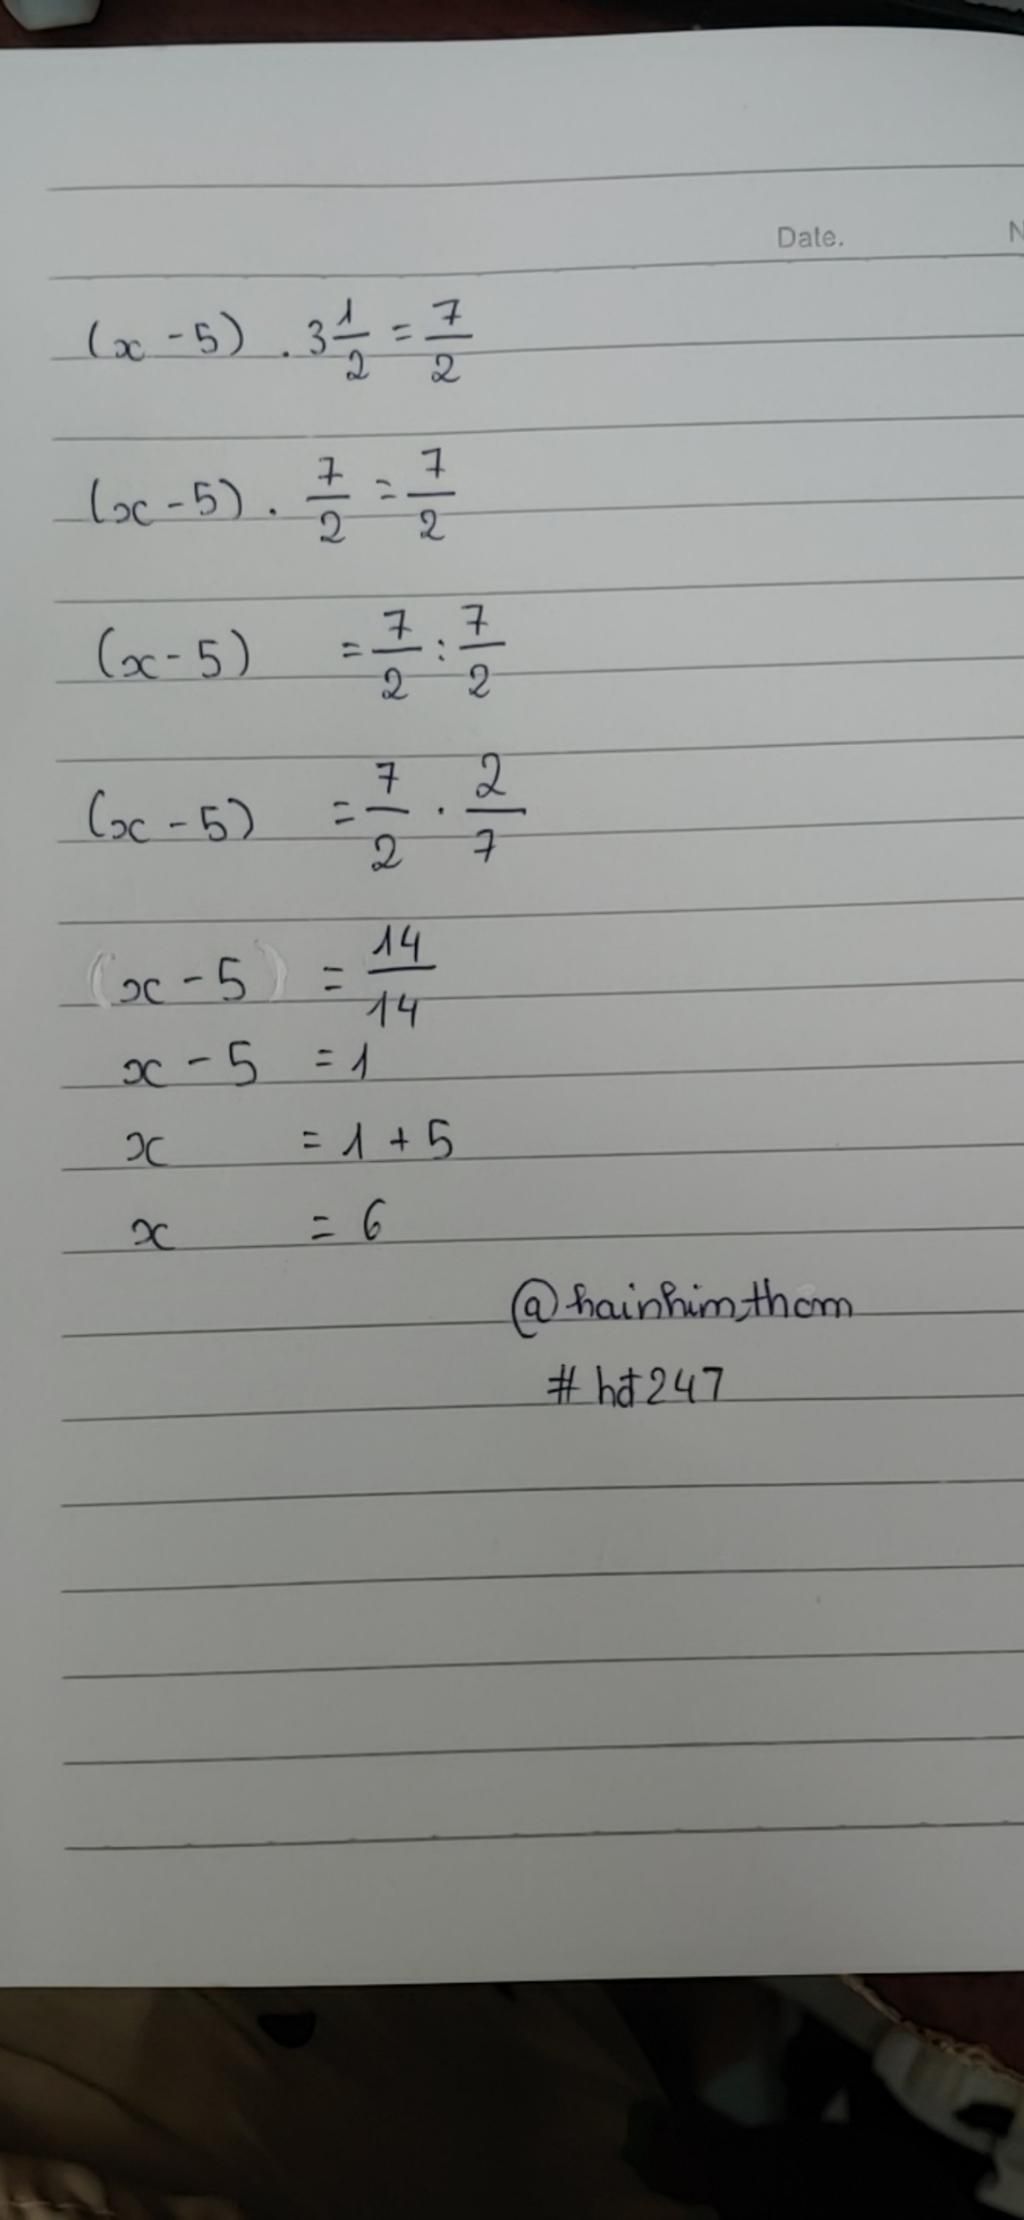 Date. N
(x - 5) . 3 1/2 = 7/2
(x - 5) . 7/2 = 7/2
(x - 5) = 7/2 : 7/2
(x - 5) = 7/2 . 2/7
(x - 5) = 14/14
x - 5 = 1
x = 1 + 5
x = 6
@hainhim,thom
# hđ247